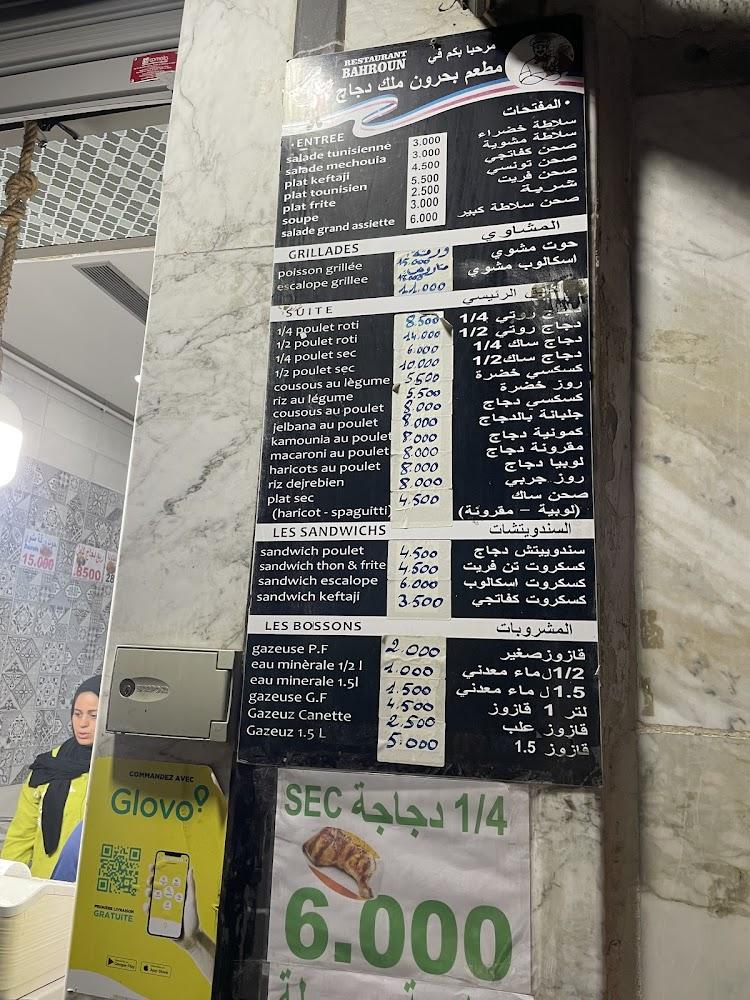 RESTAURANT
BAHROUN
مرحبا بكم في
مطعم بحرون ملك دجاج
• ENTREE
• المفتحات
salade tunisienne 3.000 سلاطة خضراء
salade mechouia 3.000 سلاطة مشوية
plat keftaji 4.500 صحن كفاتجي
plat tounisien 5.500 صحن تونسي
plat frite 2.500 صحن فريت
soupe 3.000 شربة
salade grand assiette 6.000 صحن سلاطة كبير
GRILLADES المشاوي
poisson grillée 15.000 حوت مشوي
escalope grillee 11.000 اسكالوب مشوي
SUITE الرئيسي
1/4 poulet roti 8.500 دجاج روتي 1/4
1/2 poulet roti 14.000 دجاج روتي 1/2
1/4 poulet sec 6.000 دجاج ساك 1/4
1/2 poulet sec 10.000 دجاج ساك 1/2
cousous au lègume 5.500 كسكسي خضرة
riz au légume 5.500 روز خضرة
cousous au poulet 8.000 كسكسي دجاج
jelbana au poulet 8.000 جلبانة بالدجاج
kamounia au poulet 8.000 كمونية دجاج
macaroni au poulet 8.000 مقرونة دجاج
haricots au poulet 8.000 لوبيا دجاج
riz dejrebien 8.000 روز جربي
plat sec 4.500 صحن ساك
(haricot - spaguitti) (لوبية - مقرونة)
LES SANDWICHS السندويتشات
sandwich poulet 4.500 سندوييتش دجاج
sandwich thon & frite 4.500 كسكروت تن فريت
sandwich escalope 6.000 كسكروت اسكالوب
sandwich keftaji 3.500 كسكروت كفاتجي
LES BOSSONS المشروبات
gazeuse P.F 2.000 قازوزصغير
eau minèrale 1/2 l 1.000 1/2ل ماء معدني
eau minerale 1.5l 1.500 1.5ل ماء معدني
gazeuse G.F 4.500 لتر 1 قازوز
Gazeuz Canette 2.500 قازوز علب
Gazeuz 1.5 L 5.000 قازوز 1.5
15.000
8500
COMMANDEZ AVEC
Glovo
PREMIÈRE LIVRAISON
GRATUITE
Google Play
App Store
1/4 دجاجة SEC
6.000